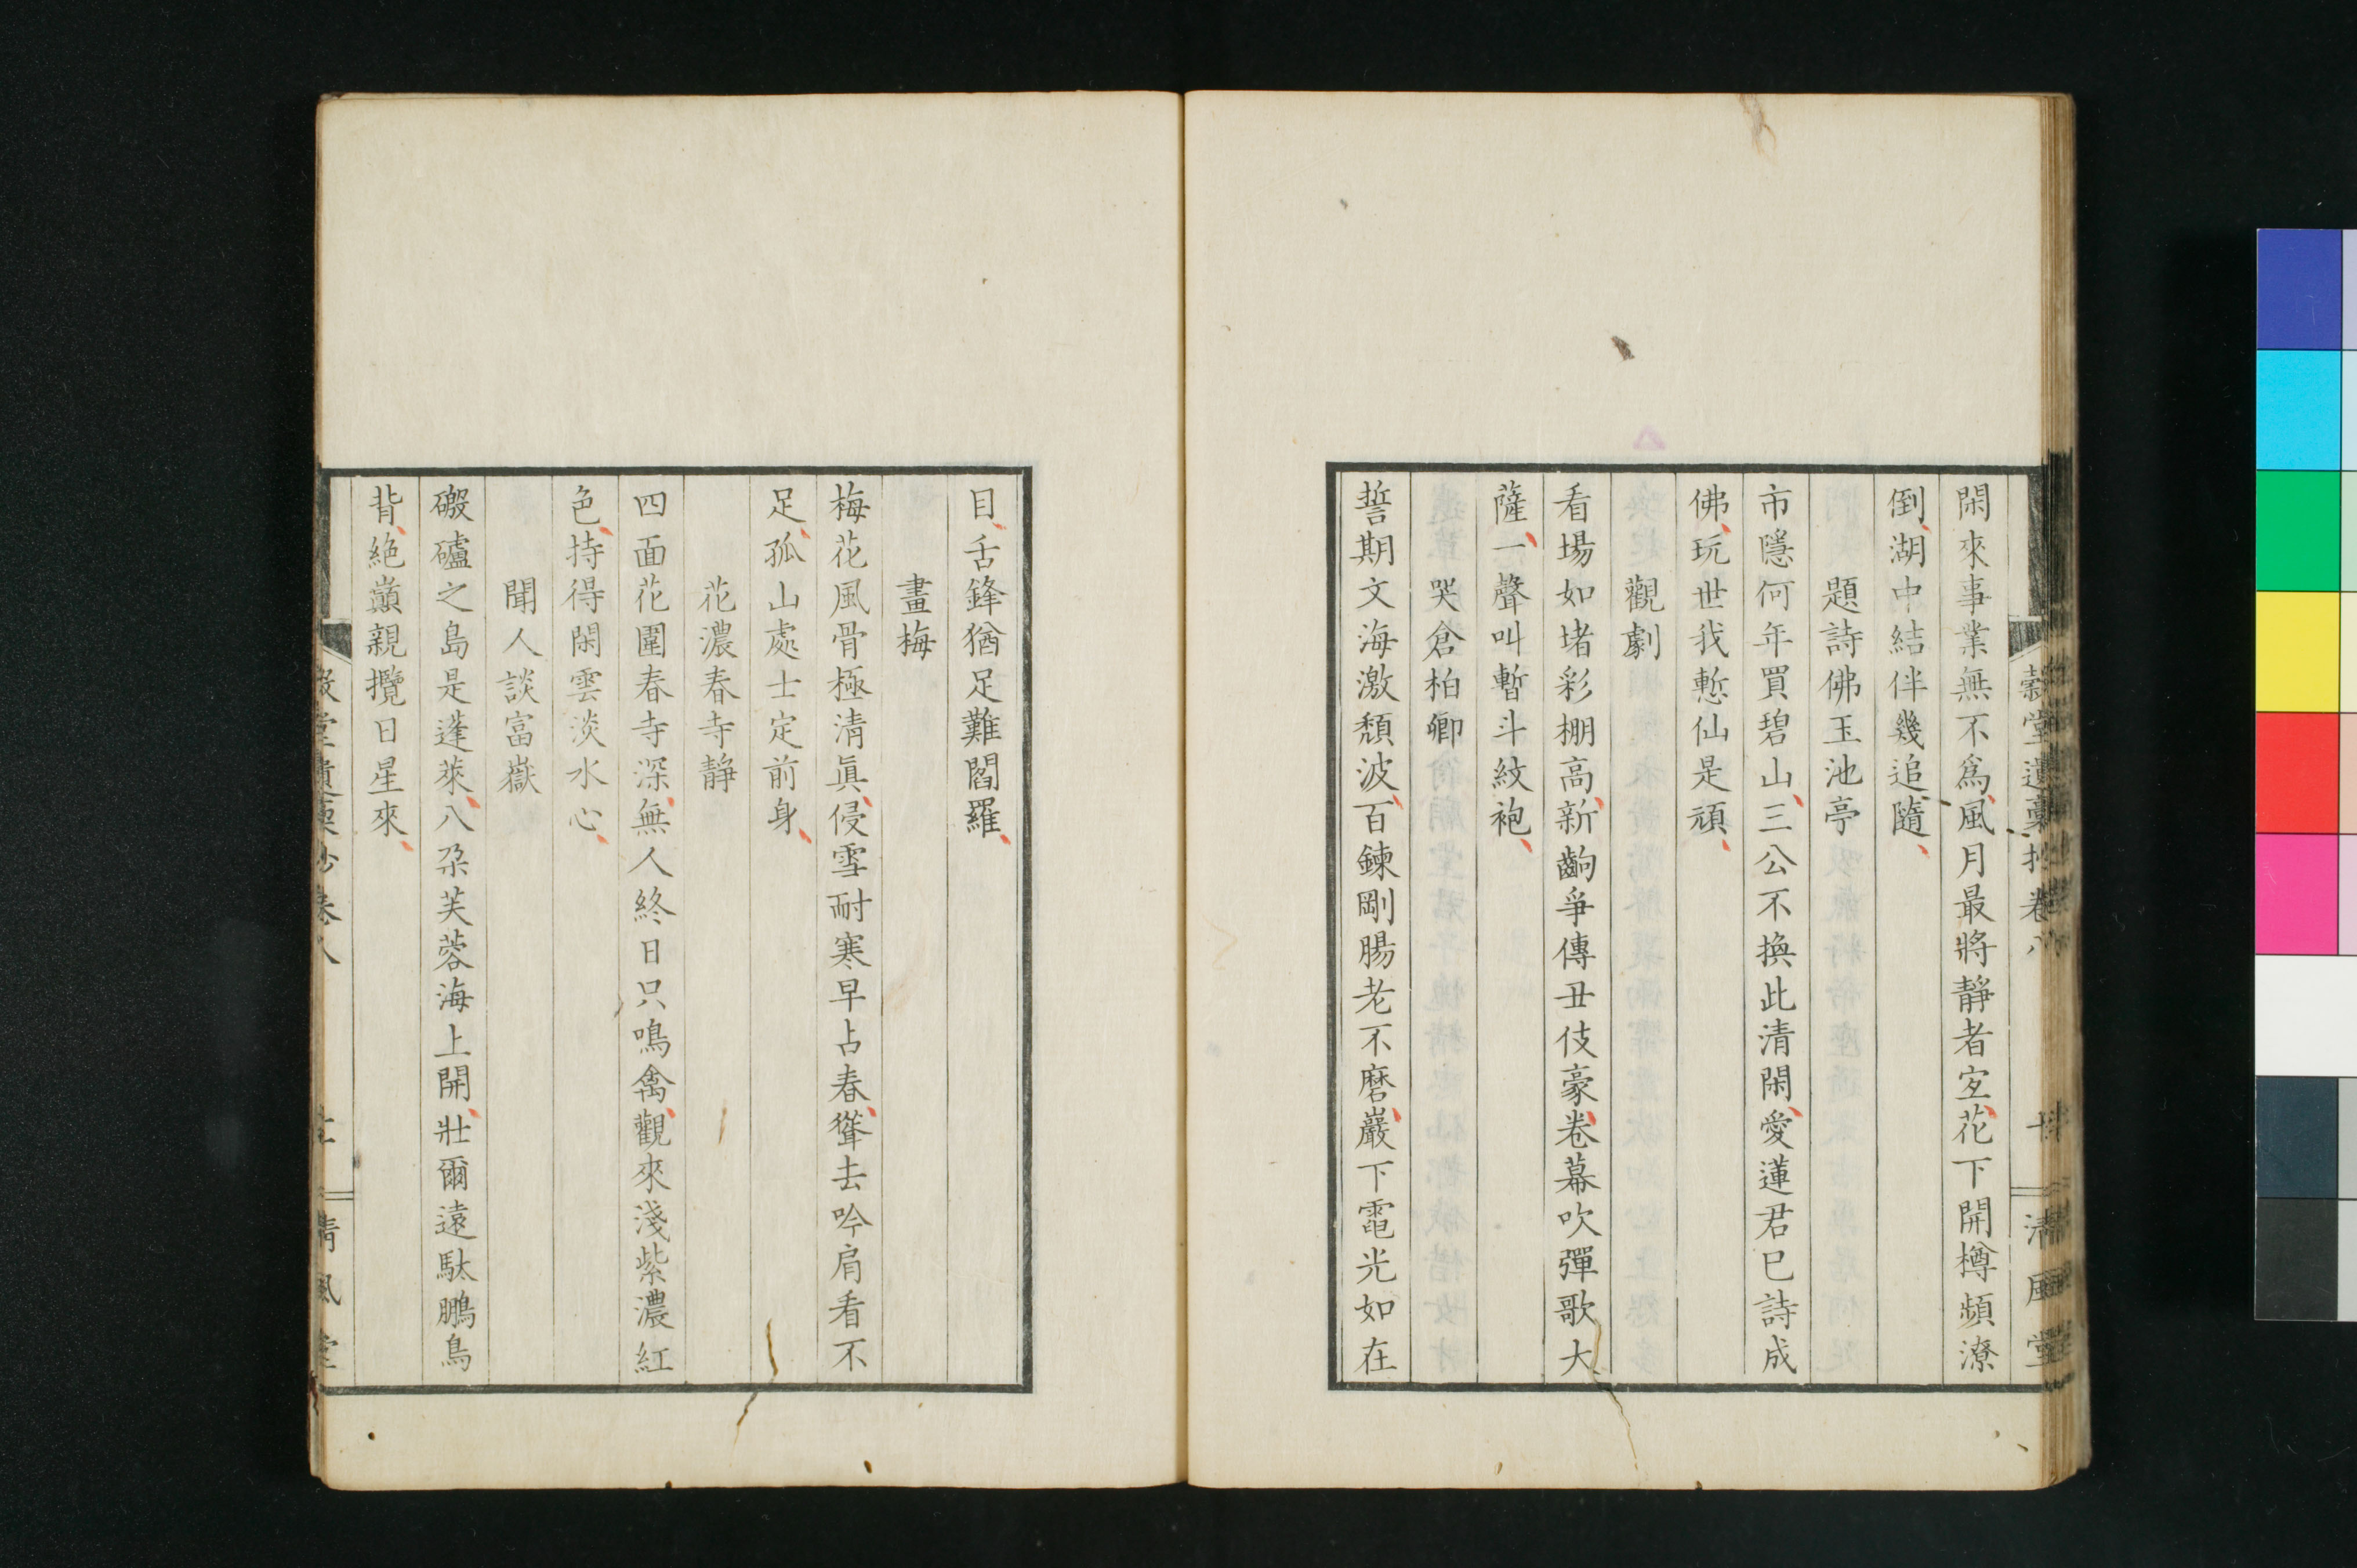 閑來事業無不爲風月最將靜者宐花下開樽頻潦
倒湖中結伴幾追隨
題詩佛玉池亭
市隱何年買碧山三公不換此清閑愛蓮君已詩成
佛玩世我慙仙是頑
觀劇
看場如堵彩棚高新齣爭傳丑伎豪卷幕吹彈歌大
薩一聲叫暫斗紋袍
哭倉柏卿
誓期文海激頹波百鍊剛腸老不磨巖下電光如在
目舌鋒猶足難閻羅
畫梅
梅花風骨極清眞侵雪耐寒早占春聳去吟肩看不
足孤山處士定前身
花濃春寺靜
四面花圍春寺深無人終日只鳴禽觀來淺紫濃紅
色持得閑雲淡水心
聞人談富嶽
磤礚之島是蓬萊八朶芙蓉海上開壯爾遠馱鵬鳥
背絶巓親攬日星來
穀堂遺稾抄卷八
清風堂
穀堂遺稾抄卷八
清風堂